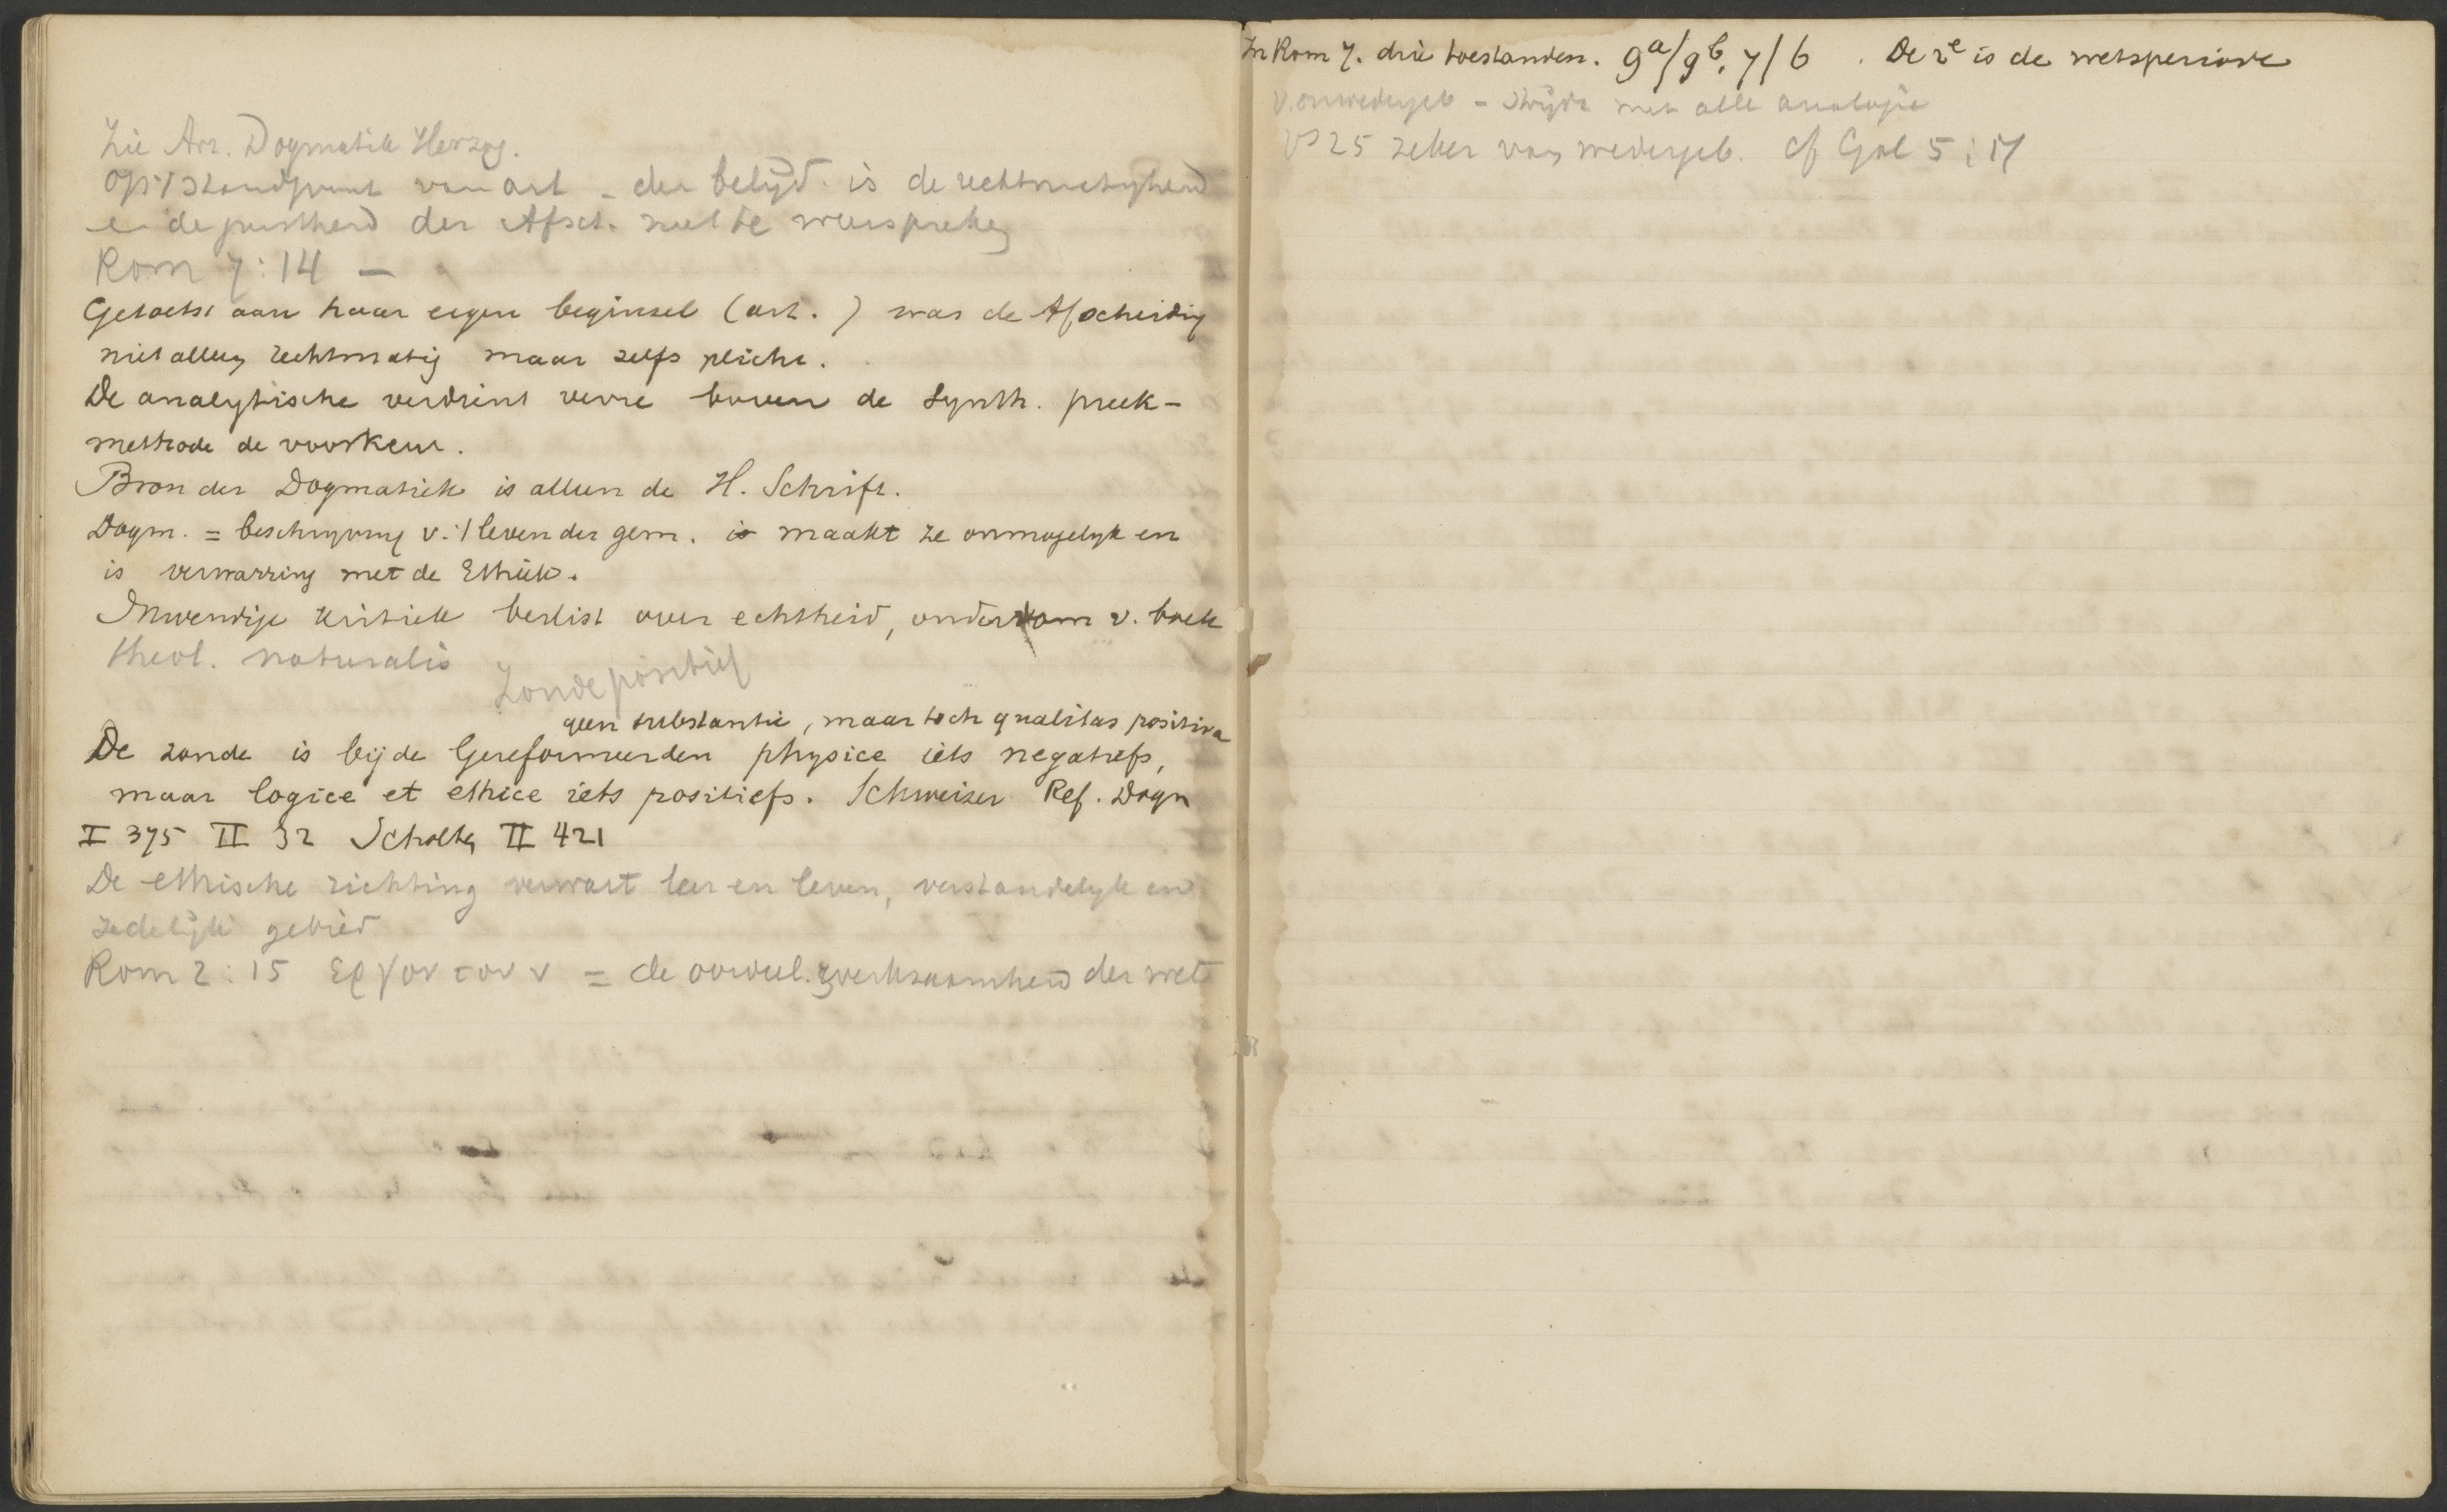 Zie Art. Dogmatik Herzog.
Op 't standpunt van art – der belijd. is de rechtmatigheid
en de juistheid der Afsch. niet te weerspreken
Rom 7:14 –
Getoetst aan haar eigen beginsel (art. ) was de Afscheiding
niet alleen rechtmatig maar zelfs plicht.
De analytische verdient verre boven de Synth. preek-
methode de voorkeur.
Bron der Dogmatiek is alleen de H. Schrift.
Dogm. = beschrijving v. 't leven der gem. is maakt ze onmogelijk en
is verwarring met de Ethiek.
Inwendige kritiek beslist over echtheid, ouderdom v. boek
theol. naturalis
Zonde positief
geen substantie, maar toch qualitas positiva
De zonde is bij de Gereformeerden physice iets negatiefs,
maar logice et ethice iets positiefs. Schweizer Ref. Dogm
I 375 II 32 Scholten II 421
De ethische richting verwart leer en leven, verstandelijk en
zedelijk gebied
Rom 2:15 εργον του ν = de oordeel. werkzaamheid der wet
In Rom 7. drie toestanden. 9a/9b, 7/6 . De 2e is de wetsperiode
v. onwedergeb – strijdt met alle analogie
vs 25 zeker van wedergeb. cf Gal 5:17